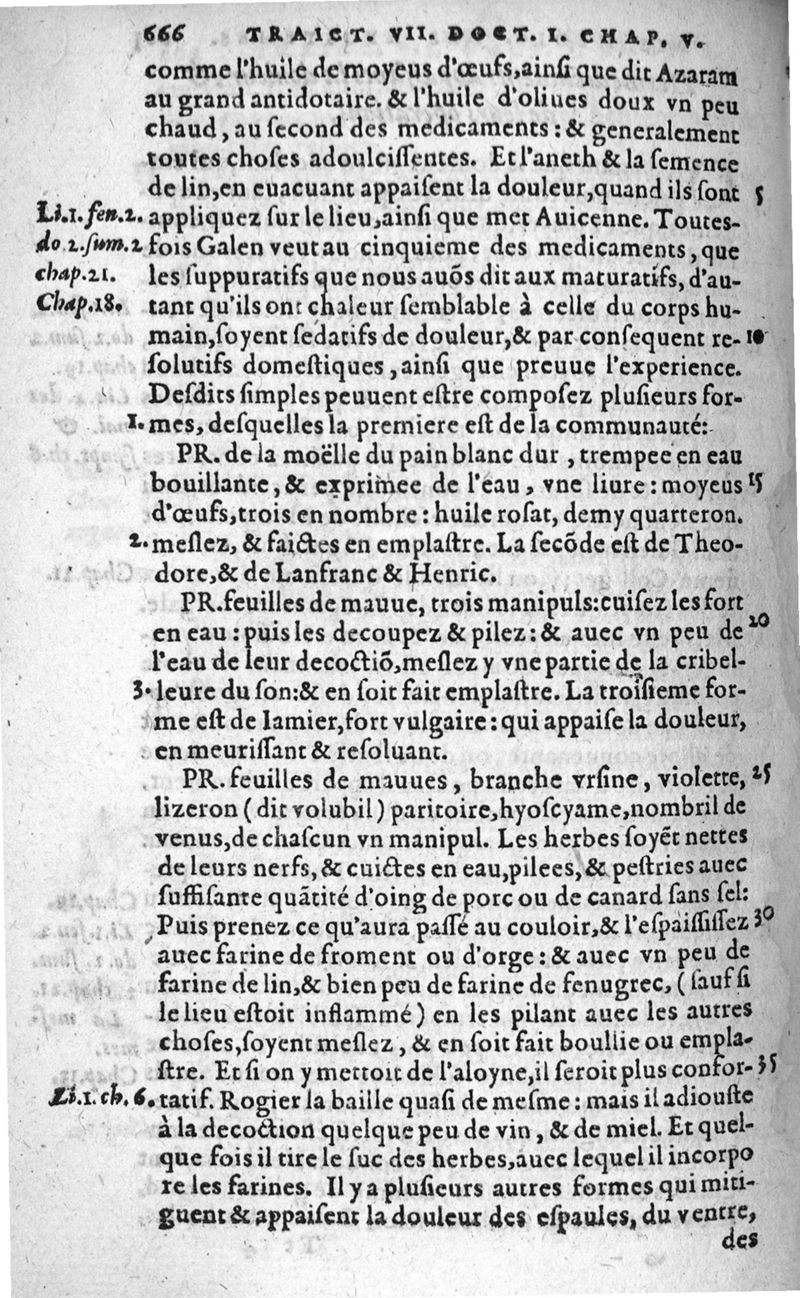 666 TRAICT. VII. DOCT. I. CHAP. V.
comme l'huile de moyeus d'œufs,ainſi que dit Azaram
au grand antidotaire. & l'huile d'oliues doux vn peu
chaud, au ſecond des medicaments : & generalement
toutes choſes adoulciſſentes. Et l'aneth & la ſemence
de lin,en euacuant appaiſent la douleur,quand ils ſont 5
Li.1.ſen.2. appliquez ſur le lieu,ainſi que met Auicenne. Toutes-
do 2.ſum.2 fois Galen veut au cinquieme des medicaments, que
chap.21. les ſuppuratifs que nous auõs dit aux maturatifs, d'au-
Chap.18. tant qu'ils ont chaleur ſemblable à celle du corps hu-
main,ſoyent ſedatifs de douleur,& par conſequent re- 10
ſolutifs domeſtiques, ainſi que preuue l'experience.
Deſdits ſimples peuuent eſtre compoſez pluſieurs for-
1. mes, deſquelles la premiere eſt de la communauté:
PR. de la moëlle du pain blanc dur, trempee en eau
bouillante, & exprimee de l'eau, vne liure : moyeus 15
d'œufs,trois en nombre : huile roſat, demy quarteron.
2. meſlez, & faictes en emplaſtre. La ſecõde eſt de Theo-
dore,& de Lanfranc & Henric.
PR.feuilles de mauue, trois manipuls:cuiſez les fort
en eau : puis les decoupez & pilez : & auec vn peu de 20
l'eau de leur decoctiõ,meſlez y vne partie de la cribel-
3. leure du ſon:& en ſoit fait emplaſtre. La troiſieme for-
me eſt de Iamier,fort vulgaire : qui appaiſe la douleur,
en meuriſſant & reſoluant.
PR. feuilles de mauues, branche vrſine, violette, 25
lizeron (dit volubil) paritoire,hyoſcyame,nombril de
venus,de chaſcun vn manipul. Les herbes ſoyẽt nettes
de leurs nerfs, & cuictes en eau,pilees,& peſtries auec
ſuffiſante quãtité d'oing de porc ou de canard ſans ſel:
Puis prenez ce qu'aura paſſé au couloir,& l'eſpaiſſiſſez 30
auec farine de froment ou d'orge : & auec vn peu de
farine de lin,& bien peu de farine de fenugrec, (ſauf ſi
le lieu eſtoit inflammé) en les pilant auec les autres
choſes,ſoyent meſlez, & en ſoit fait boullie ou empla-
ſtre. Et ſi on y mettoit de l'aloyne,il ſeroit plus confor- 35
Li.1.ch. 6. tatif. Rogier la baille quaſi de meſme : mais il adiouſte
à la decoction quelque peu de vin, & de miel. Et quel-
que fois il tire le ſuc des herbes,auec lequel il incorpo
re les farines. Il y a pluſieurs autres formes qui miti-
guent & appaiſent la douleur des eſpaules, du ventre,
des